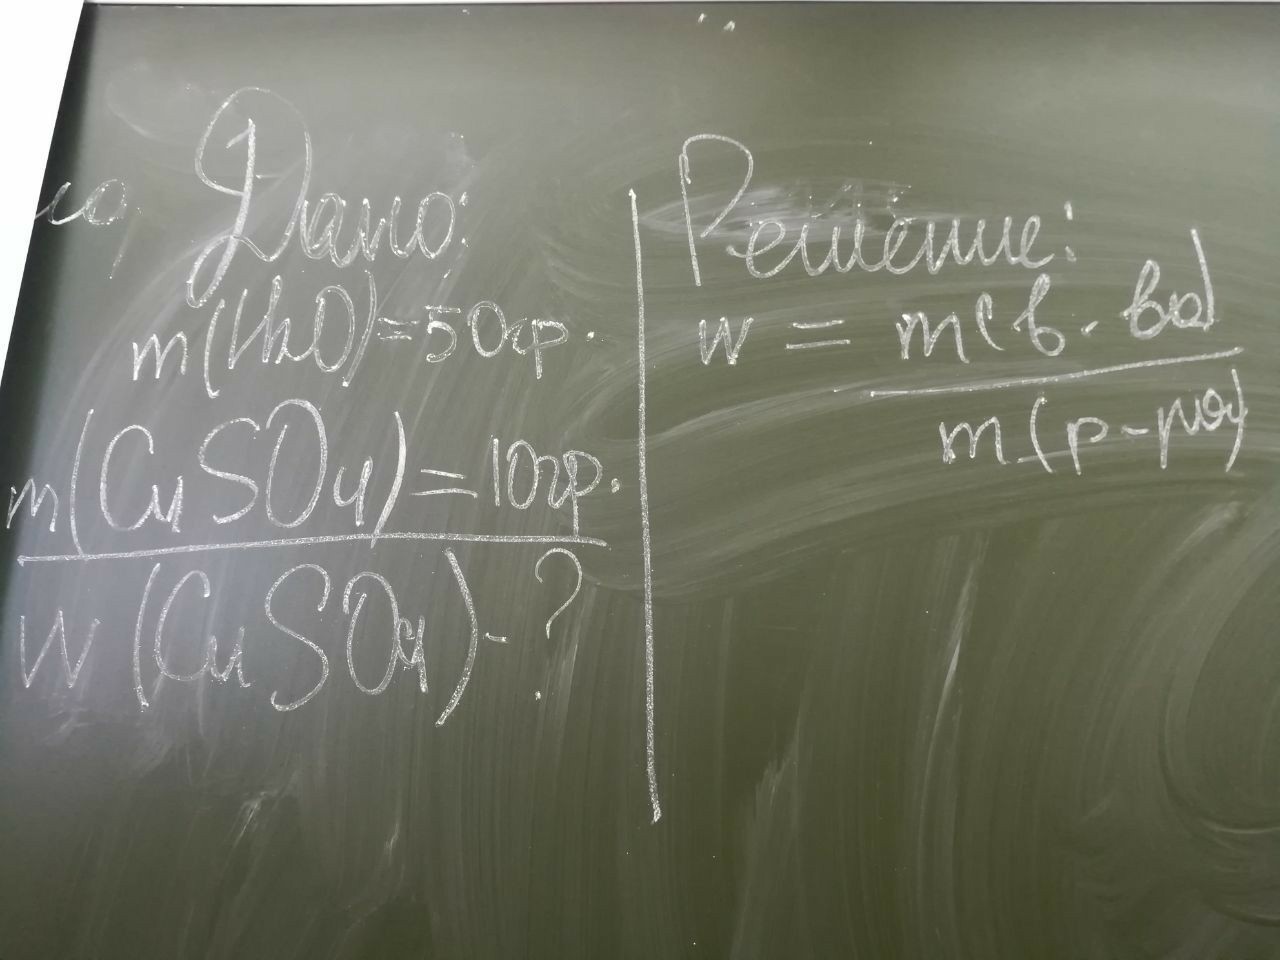 Дано:
m(H2O)=50гр.
m(CuSO4)=10гр.
W(CuSO4)-?
Решение:
w = m(в-ва)
m(р-ра)